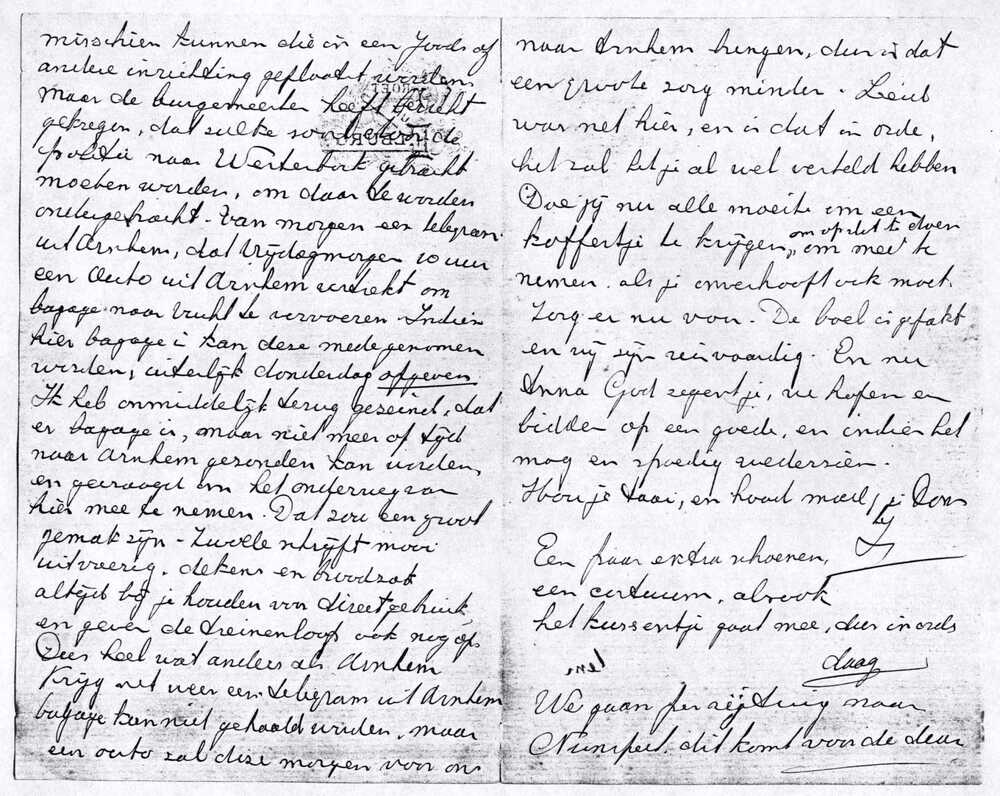 misschien kunnen die in een Joods of
andere inrichting geplaatst worden,
maar de burgemeester heeft bericht
gekregen, dat zulke door de
politie naar Westerbork gebracht
moeten worden, om daar te worden
ondergebracht - Van morgen een telegram
uit Arnhem, dat Vrijdagmorgen 10 uur
een auto uit Arnhem vertrekt om
bagage naar Vucht te vervoeren. Indien
hier bagage is kan deze mede genomen
worden, uiterlijk donderdag afgeven
Ik heb onmiddelijk terug geseind, dat
er bagage is, maar niet meer op tijd
naar Arnhem gezonden kan worden,
en gevraagd om het onderweg van
hier mee te nemen. Dat zou een groot
gemak zijn - Zwolle schrijft mooi
uitvoerig. dekens en broodzak
altijd bij je houden voor direct gebruik,
en geven de treinenloop ook nog op
Dus heel wat anders als Arnhem
Krijg net weer een telegram uit Arnhem
bagage kan niet gehaald worden, maar
een auto zal deze morgen voor ons
naar Arnhem brengen, dus is dat
een groote zorg minder. Leub
was net hier, en is dat in orde,
het zal het je al wel verteld hebben
Doe jij nu alle moeite om een
koffertje te krijgen, om op slot te doen om mee te
nemen. als je onverhooft ook moet.
Zorg er nu voor. De boel is gepakt
en wij zijn reisvaardig. En nu
Anna God zegent je, we hopen en
bidden op een goede, en indien het
mag en spoedig wederzien.
Hou je taai, en houd moed, je
Een paar extra schoenen,
een costuum, alsook
het kussentje gaat mee, dus in orde
daag
We gaan per rijtuig naar
Nunspeet. dit komt voor de deur